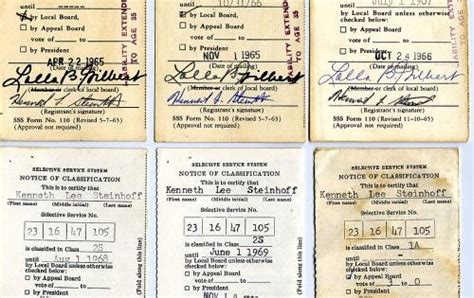 until
by Local Board,
by Appeal Board
vote of to
by President
APR 22 1965
(Date of mailing)
Lolla B. Gilbert
(Member or clerk of local board)
(Registrant's signature)
SSS Form No. 110 (Revised 5-7-63)
(Approval not required)
LIABILITY EXTENDED
TO AGE 35
10/11/66
by Local Board
by Appeal Board
vote of to
by President
NOV 1 1965
(Date of mailing)
Lolla B. Gilbert
(Member or clerk of local board)
(Registrant's signature)
SSS Form No. 110 (Revised 5-7-63)
(Approval not required)
LIABILITY EXTENDED
TO AGE 35
July 1 1967
by Local Board unless otherwise
checked below:
by Appeal Board
vote of to
by President
OCT 24 1966
(Date of mailing)
Lolla B. Gilbert
(Member or clerk of local board)
(Registrant's signature)
SSS Form No. 110 (Revised 11-10-65)
(Approval not required)
LIABILITY EXTENDED
TO AGE 35
SELECTIVE SERVICE SYSTEM
NOTICE OF CLASSIFICATION
This is to certify that
Kenneth Lee Steinhoff
(First name) (Middle initial) (Last name)
Selective Service No.
23 16 47 105
is classified in Class 2S
until Aug 1 1968
by Local Board unless otherwise
checked below:
by Appeal Board
vote of to
by President
(Fold along this line)
SELECTIVE SERVICE SYSTEM
NOTICE OF CLASSIFICATION
This is to certify that
Kenneth Lee Steinhoff
(First name) (Middle initial) (Last name)
Selective Service No.
23 16 47 105
is classified in Class 2S
until June 1 1969
by Local Board unless otherwise
checked below:
by Appeal Board
vote of to
by President
(Fold along this line)
SELECTIVE SERVICE SYSTEM
NOTICE OF CLASSIFICATION
This is to certify that
Kenneth Lee Steinhoff
(First name) (Middle initial) (Last name)
Selective Service No.
23 16 47 105
is classified in Class 1A
until
by Local Board unless otherwise
checked below:
by Appeal Board
vote of 3 to 0
by President
(Fold along this line)